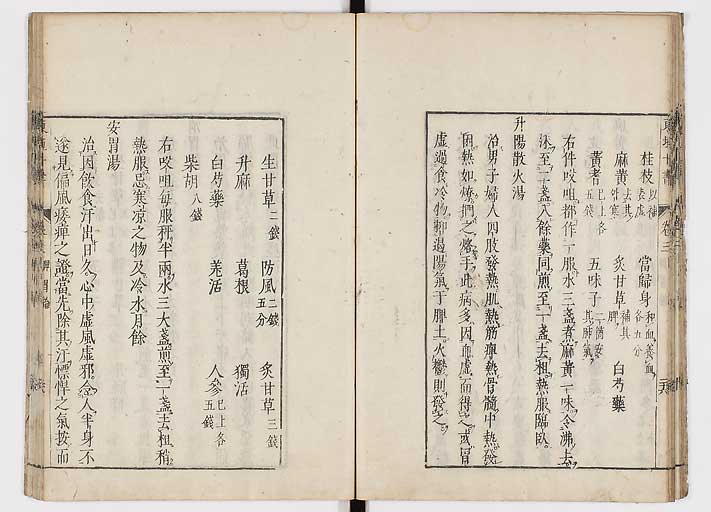 桂枝 以補表虚 當歸身 和血養血各五分
麻黄 去其外寒 炙甘草 補其脾 白芍藥
黄耆 已上各五錢 五味子 二箇安其肺氣
右件㕮咀都作一服水三盞煮麻黄一味令沸去
沫至二盞入餘藥同煎至一盞去粗熱服臨臥
升陽散火湯
治男子婦人四肢發熱肌熱筋痹熱骨髓中熱發
困熱如燎捫之烙手此病多因血虚而得之或胃
虚過食冷物抑遏陽氣于脾土火鬱則發之
生甘草 二錢 防風 二錢五分 炙甘草 三錢
升麻 葛根 獨活
白芍藥 羌活 人參 已上各五錢
柴胡 八錢
右㕮咀毎服秤半兩水三大盞煎至一盞去粗稍
熱服忌寒凉之物及冷水月餘
安胃湯
治因飲食汗出日久心中虚風虚邪令人半身不
遂見偏風痿痹之證當先除其汗慓悍之氣按而